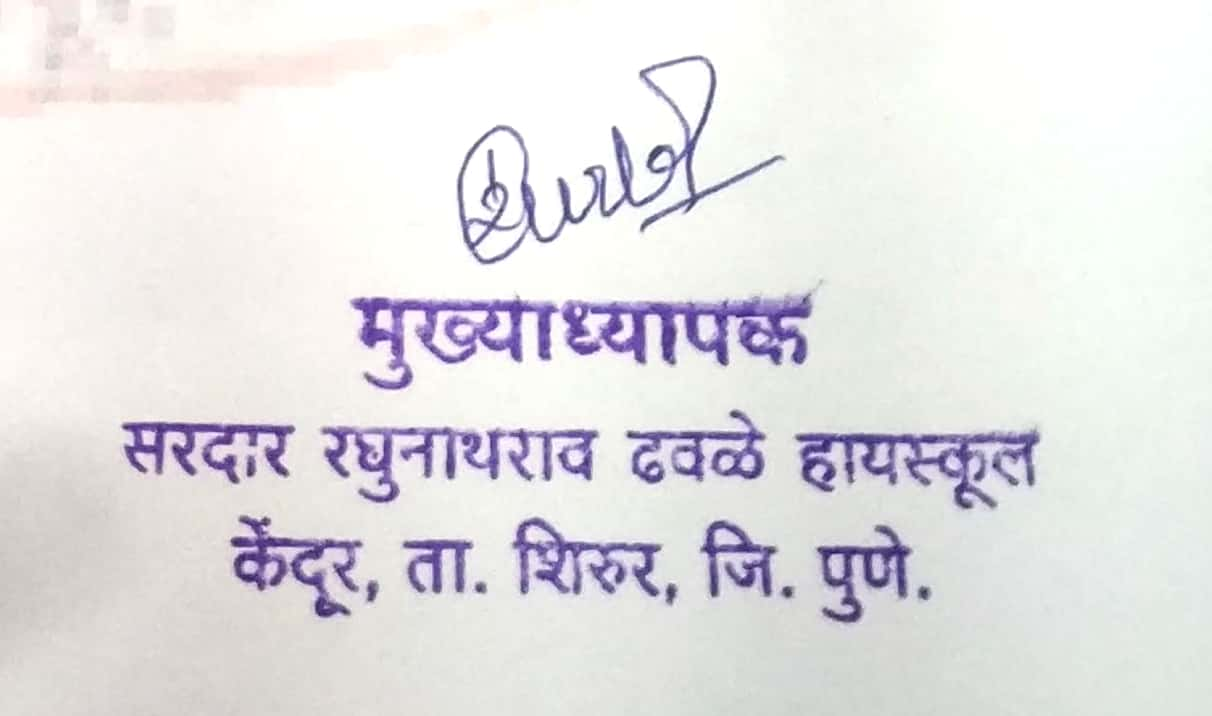 मुख्याध्यापक
सरदार रघुनाथराव ढवळे हायस्कूल
केंदूर, ता. शिरुर, जि. पुणे.